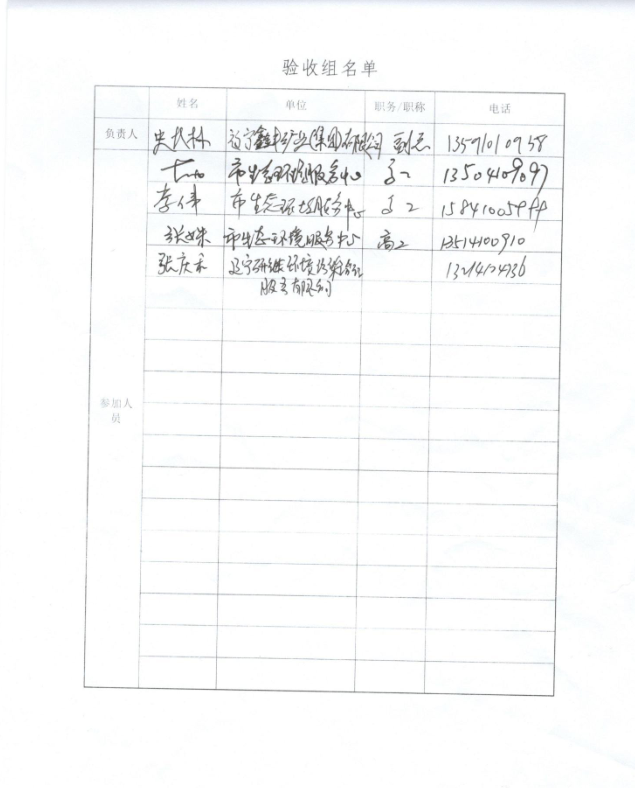 验收组名单
姓名 单位 职务/职称 电话
负责人 史长林 辽宁鑫丰矿业(集团)有限公司 副总
市生态环境服务中心 高工
李伟 市生态环境服务中心 高工
张姝 市生态环境服务中心 高工 13514100910
张庆禾 辽宁
服务有限公司
参加人
员